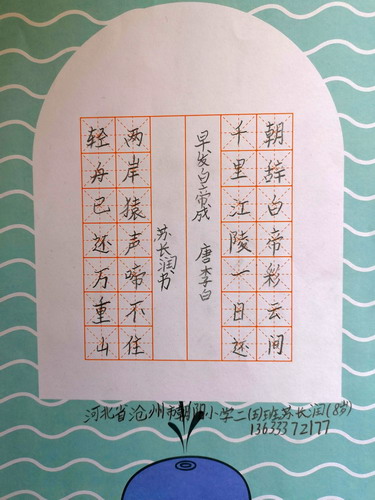 朝辞白帝彩云间
千里江陵一日还
早发白帝城 唐李白
苏长润书
两岸猿声啼不住
轻舟已还万重山
河北省沧州市朝阳小学二(五)班苏长润(8岁)
13633372177